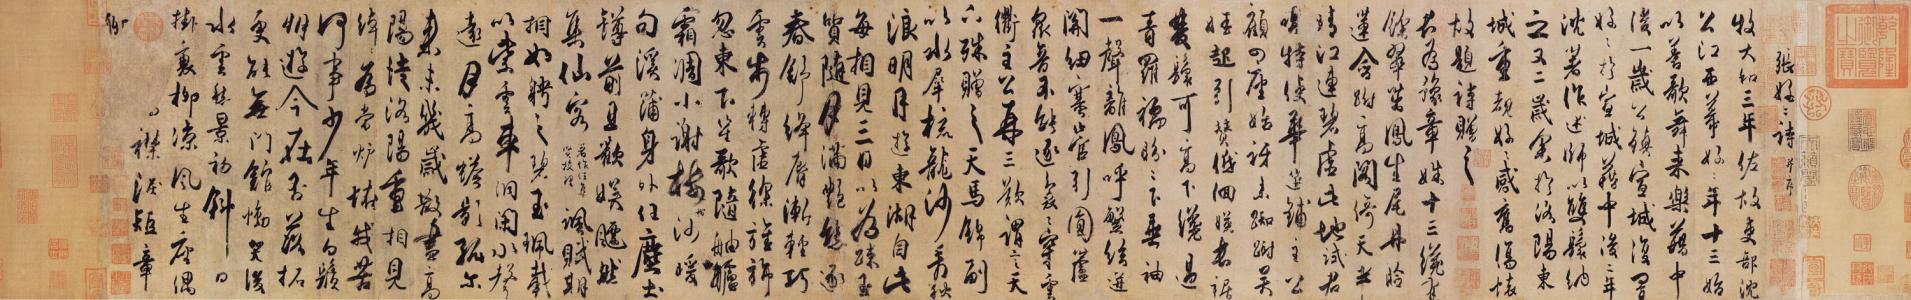 張好好詩 并序
牧大和三年佐故吏部沈
公江西幕好好年十三始
以善歌舞來樂籍中
後一歲公鎮宣城復置
好好於宣城籍中後二年
沈著作述師以雙鬟納
之又二歲余於洛陽東
城重覩好好感舊傷懷
故題詩贈之
君為豫章姝十三纔有
餘翠茁鳳生尾丹臉
蓮含跗高閣倚天半
晴江連碧虛此地試君
唱特使華筵鋪主公
顧四座始訝來踟躕吳
娃起引贊低佪映長裾
雙鬟可高下纔過
青羅襦盼盼下垂袖
一聲離鳳呼繁絃迸
關紐塞管引圓蘆
衆音不能逐裊裊穿雲
衢主公再三歎謂言天
下殊贈之天馬錦副
以水犀梳龍沙看秋
浪明月遊東湖自此
每相見三日以為疎玉
質隨月滿艷態逐
春舒絳脣漸輕巧
雲步轉虛徐旌旆
忽東下笙歌隨舳艫
霜凋小謝樹沙暖
句溪蒲身外任塵土
罇前且歡娛飄然
集仙客 著作任集賢校理 諷賦期
相如聘之碧玉珮載
以紫雲車洞閉水聲
遠月高蟾影孤爾
來未幾歲散盡高
陽徒洛陽重相見
綽綽為當壚怪我苦
何事少年生白鬚
朋遊今在否落拓
更能無門館慟哭後
水雲愁景初斜日
掛衰柳涼風生座隅
襟淚短章
乾隆御覽之寶